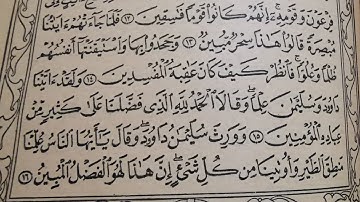 فِرْعَوْنَ وَقَوْمِهِۦٓ إِنَّهُمْ كَانُوا۟ قَوْمًا فَـٰسِقِينَ ١٢ فَلَمَّا جَآءَتْهُمْ ءَايَـٰتُنَا
مُبْصِرَةً قَالُوا۟ هَـٰذَا سِحْرٌ مُّبِينٌ ١٣ وَجَحَدُوا۟ بِهَا وَٱسْتَيْقَنَتْهَآ أَنفُسُهُمْ
ظُلْمًا وَعُلُوًّا فَٱنظُرْ كَيْفَ كَانَ عَـٰقِبَةُ ٱلْمُفْسِدِينَ ١٤ وَلَقَدْ ءَاتَيْنَا
دَاوُۥدَ وَسُلَيْمَـٰنَ عِلْمًا وَقَالَا ٱلْحَمْدُ لِلَّهِ ٱلَّذِى فَضَّلَنَا عَلَىٰ كَثِيرٍ مِّنْ
عِبَادِهِ ٱلْمُؤْمِنِينَ ١٥ وَوَرِثَ سُلَيْمَـٰنُ دَاوُۥدَ وَقَالَ يَـٰٓأَيُّهَا ٱلنَّاسُ عُلِّمْنَا
مَنطِقَ ٱلطَّيْرِ وَأُوتِينَا مِن كُلِّ شَىْءٍ إِنَّ هَـٰذَا لَهُوَ ٱلْفَضْلُ ٱلْمُبِينُ ١٦